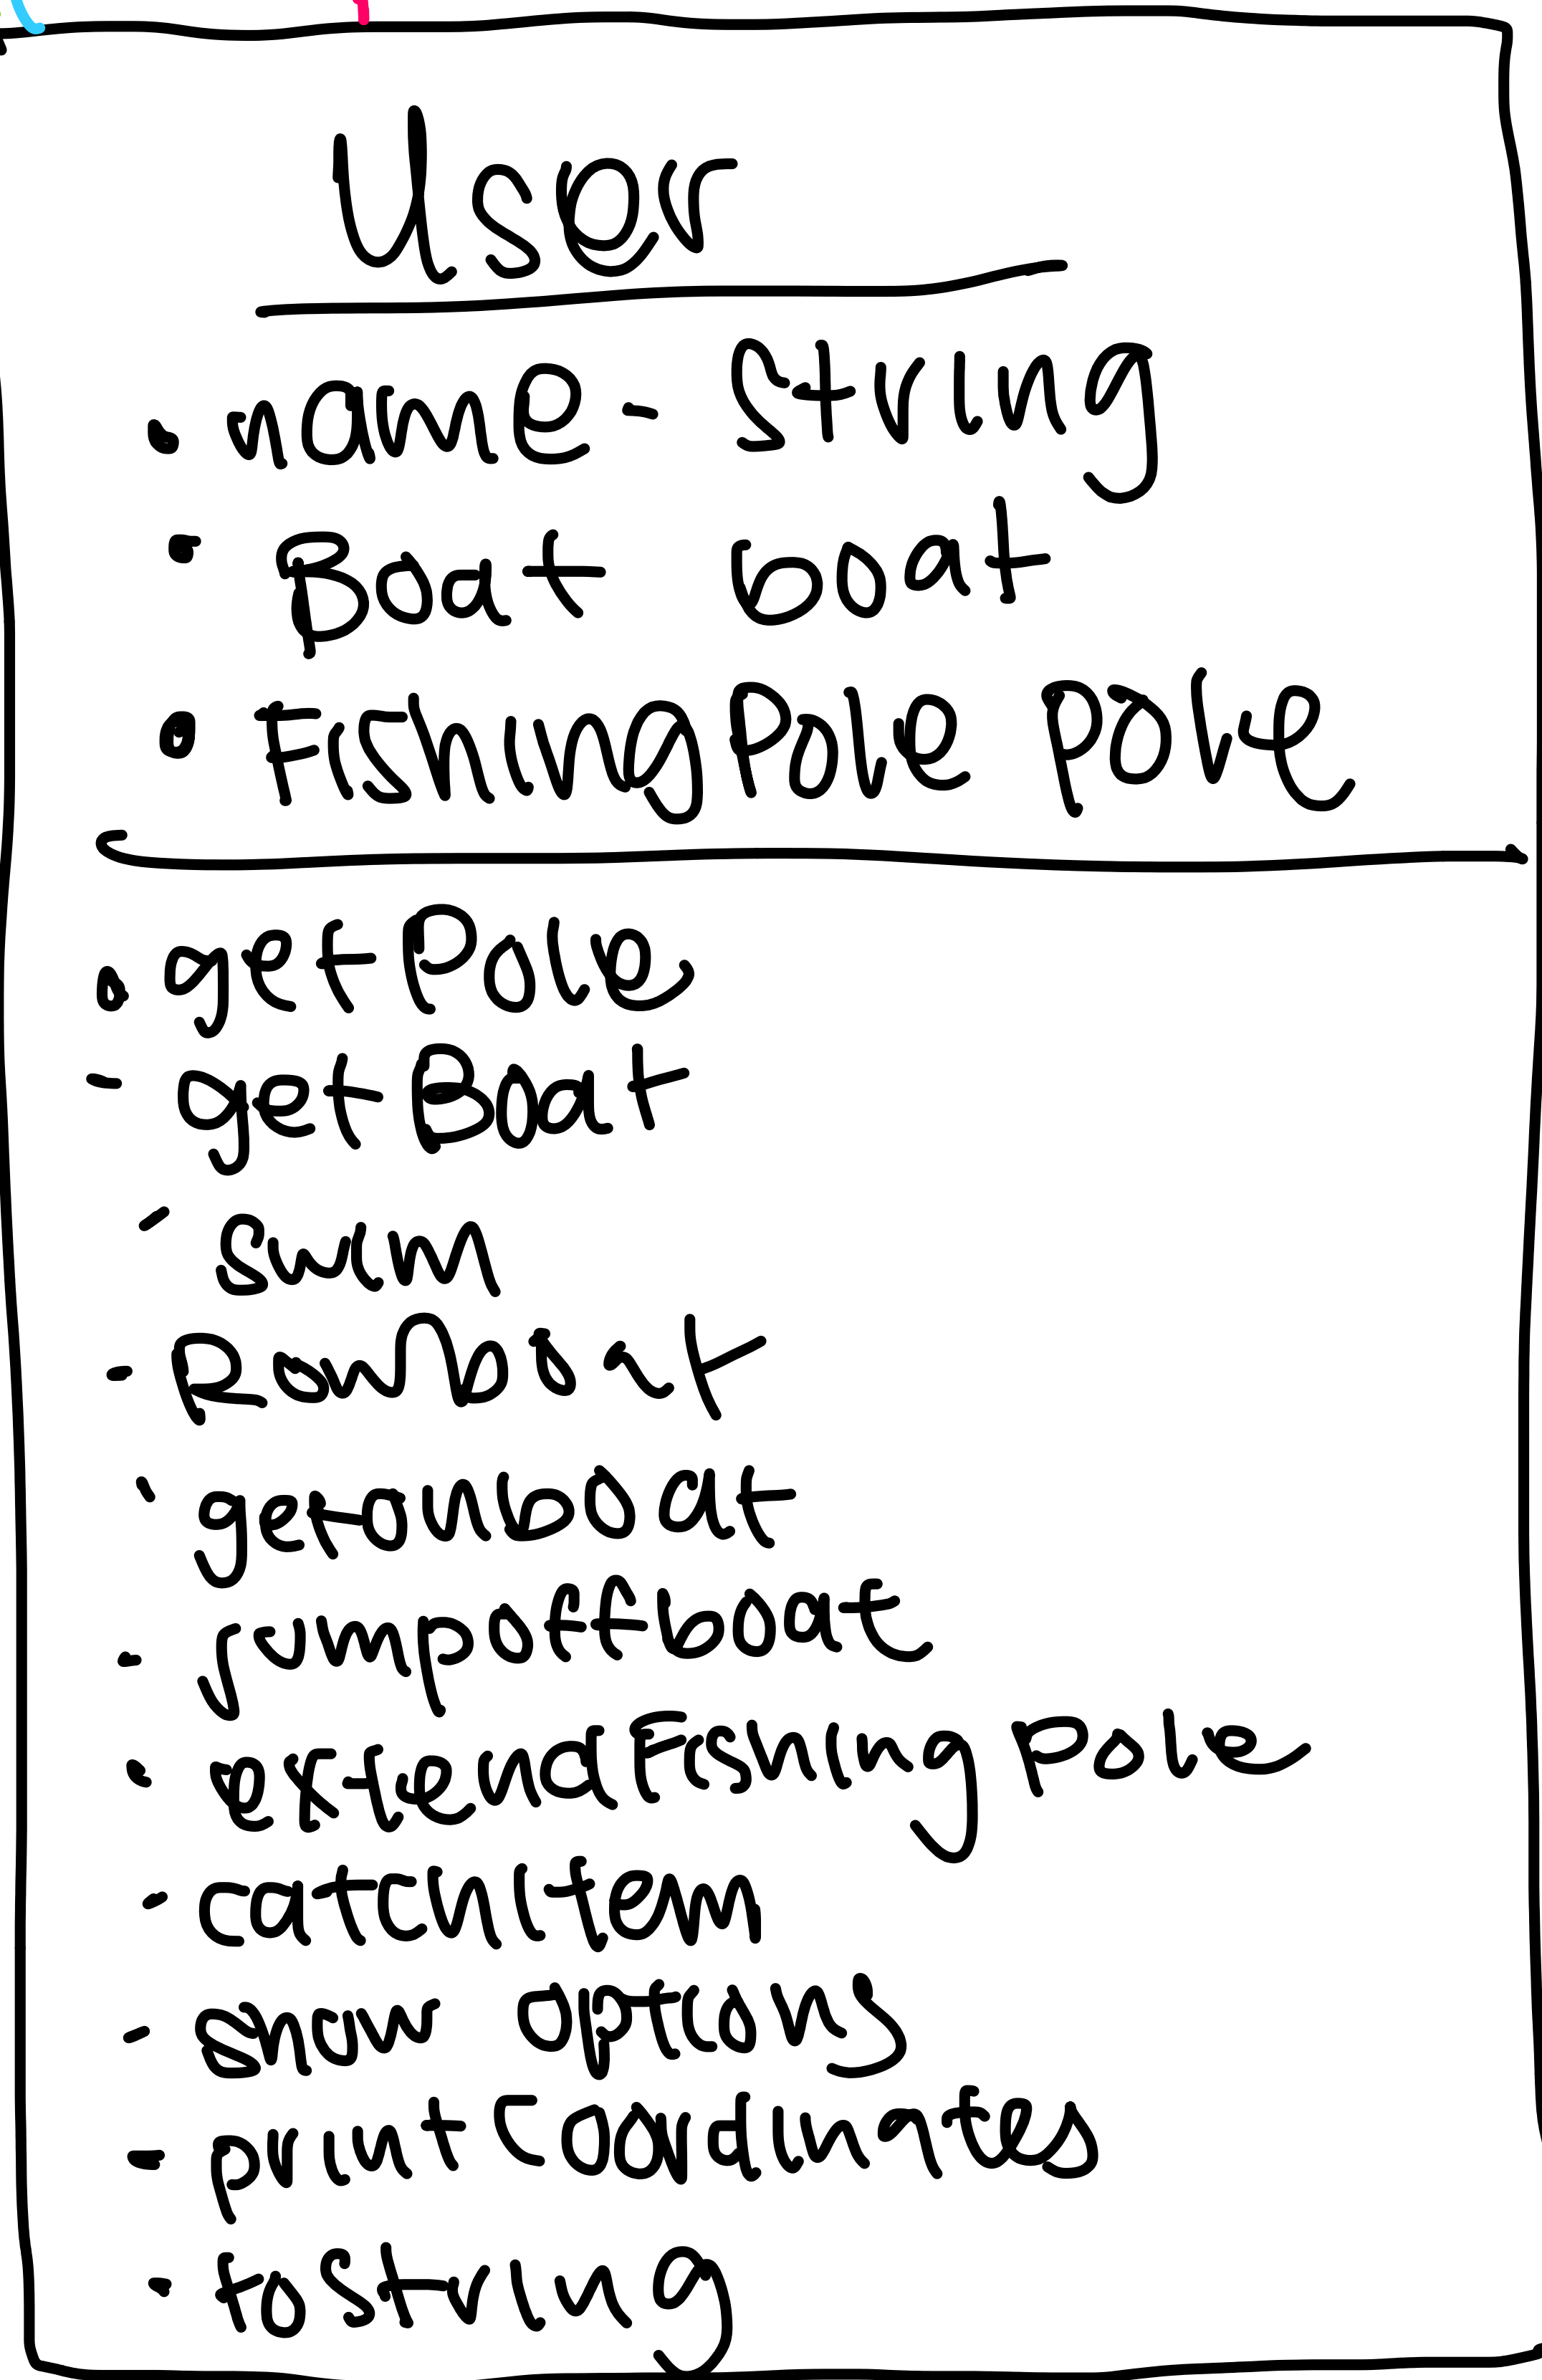 User
· name - String
· Boat boat
· FishingPole pole
· getPole
- getBoat
- swim
- RowBoat
- getonboat
- jumpoffboat
· extendFishingPole
- catchItem
- show options
- printCoordinates
- toString